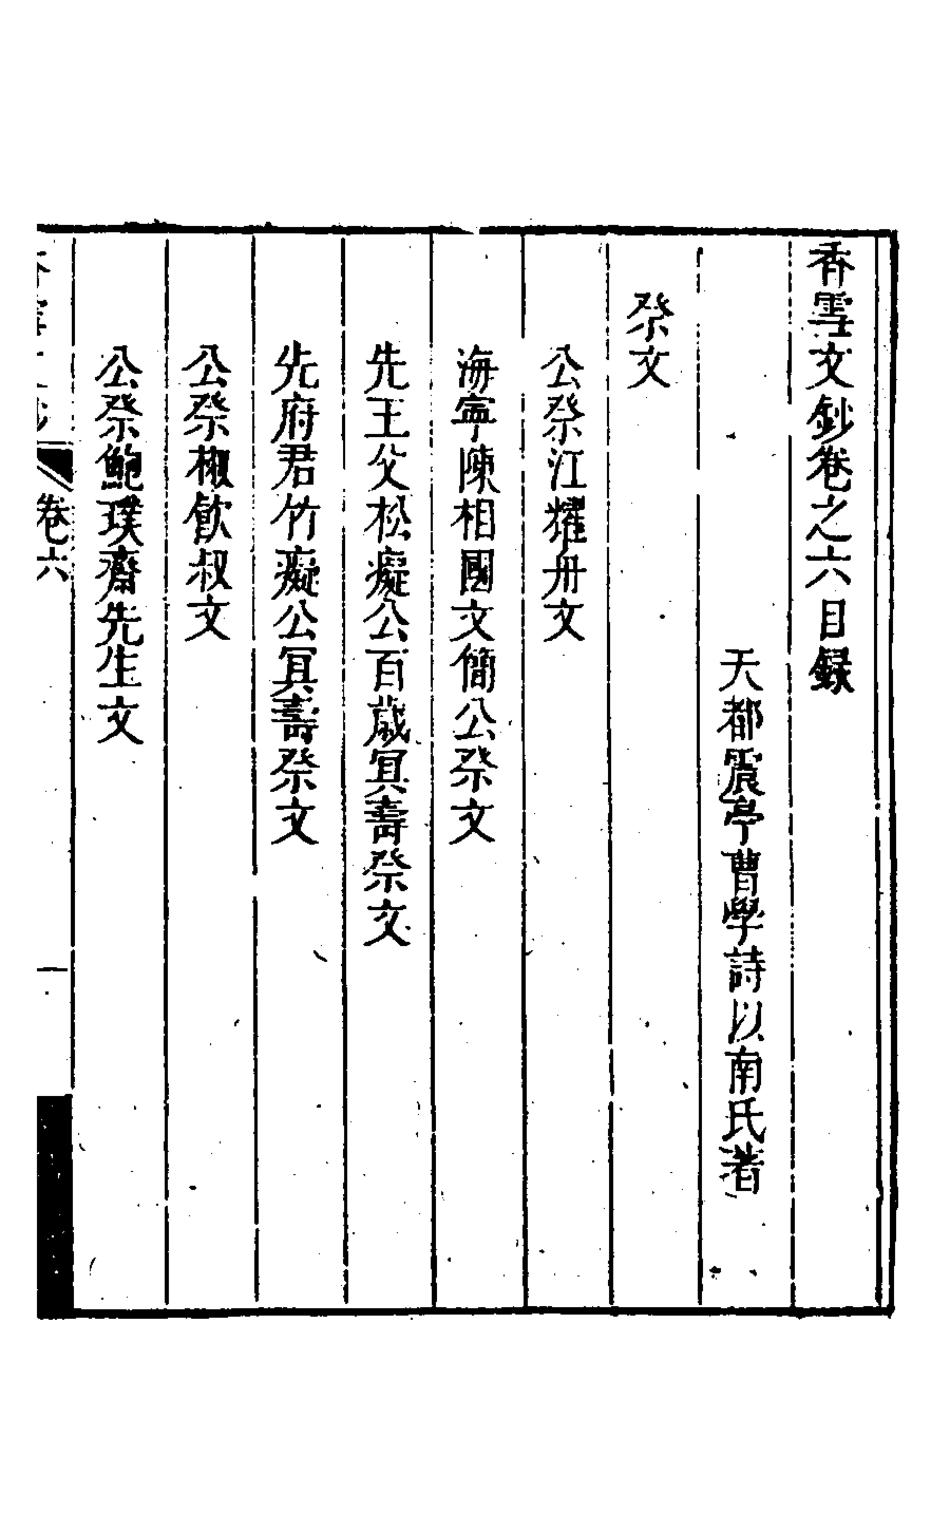 香雪文鈔卷之六目録
天都震亭曹學詩以南氏著
祭文
公祭江耀舟文
海寧陳相國文簡公祭文
先王父松癡公百歲冥壽祭文
先府君竹癡公冥壽祭文
公祭椒飮叔文
公祭鮑璞齋先生文
香雪文鈔
卷六
一